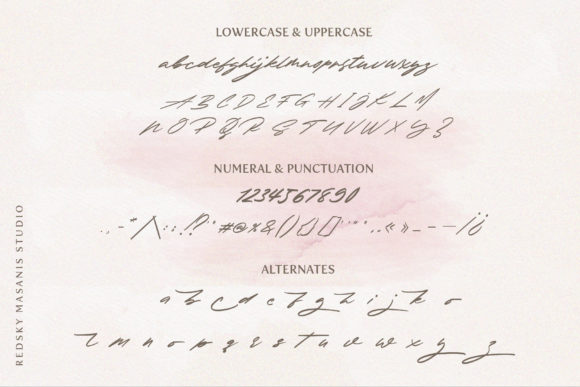 LOWERCASE & UPPERCASE
abcdefghijklmnopqrstuvwxyz
ABCDEFGHIJKLM
NOPQRSTUVWXYZ
NUMERAL & PUNCTUATION
1234567890
ALTERNATES
a b c d e f g h i j k o
r m n o p q r s t u v w x y z
REDSKY MASANIS STUDIO